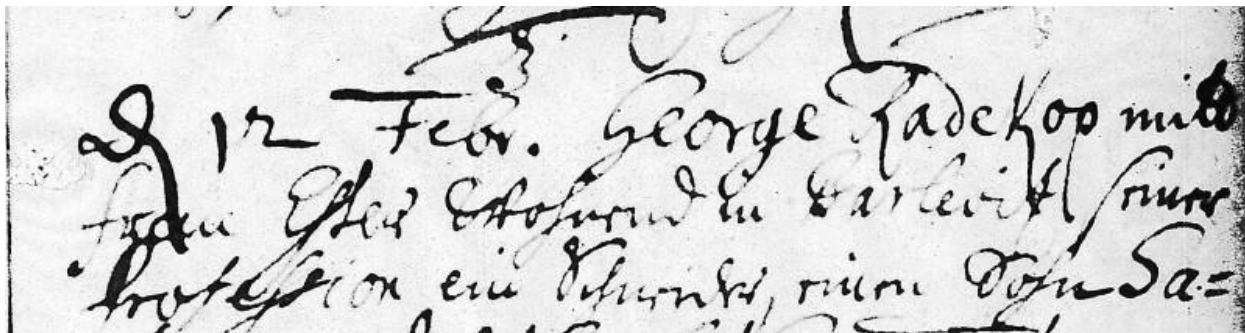 d 12 Febr. George Radekop mitt
frau Ester Wohnend in seiner
Profession ein Schneider, einen Sohn Sa=